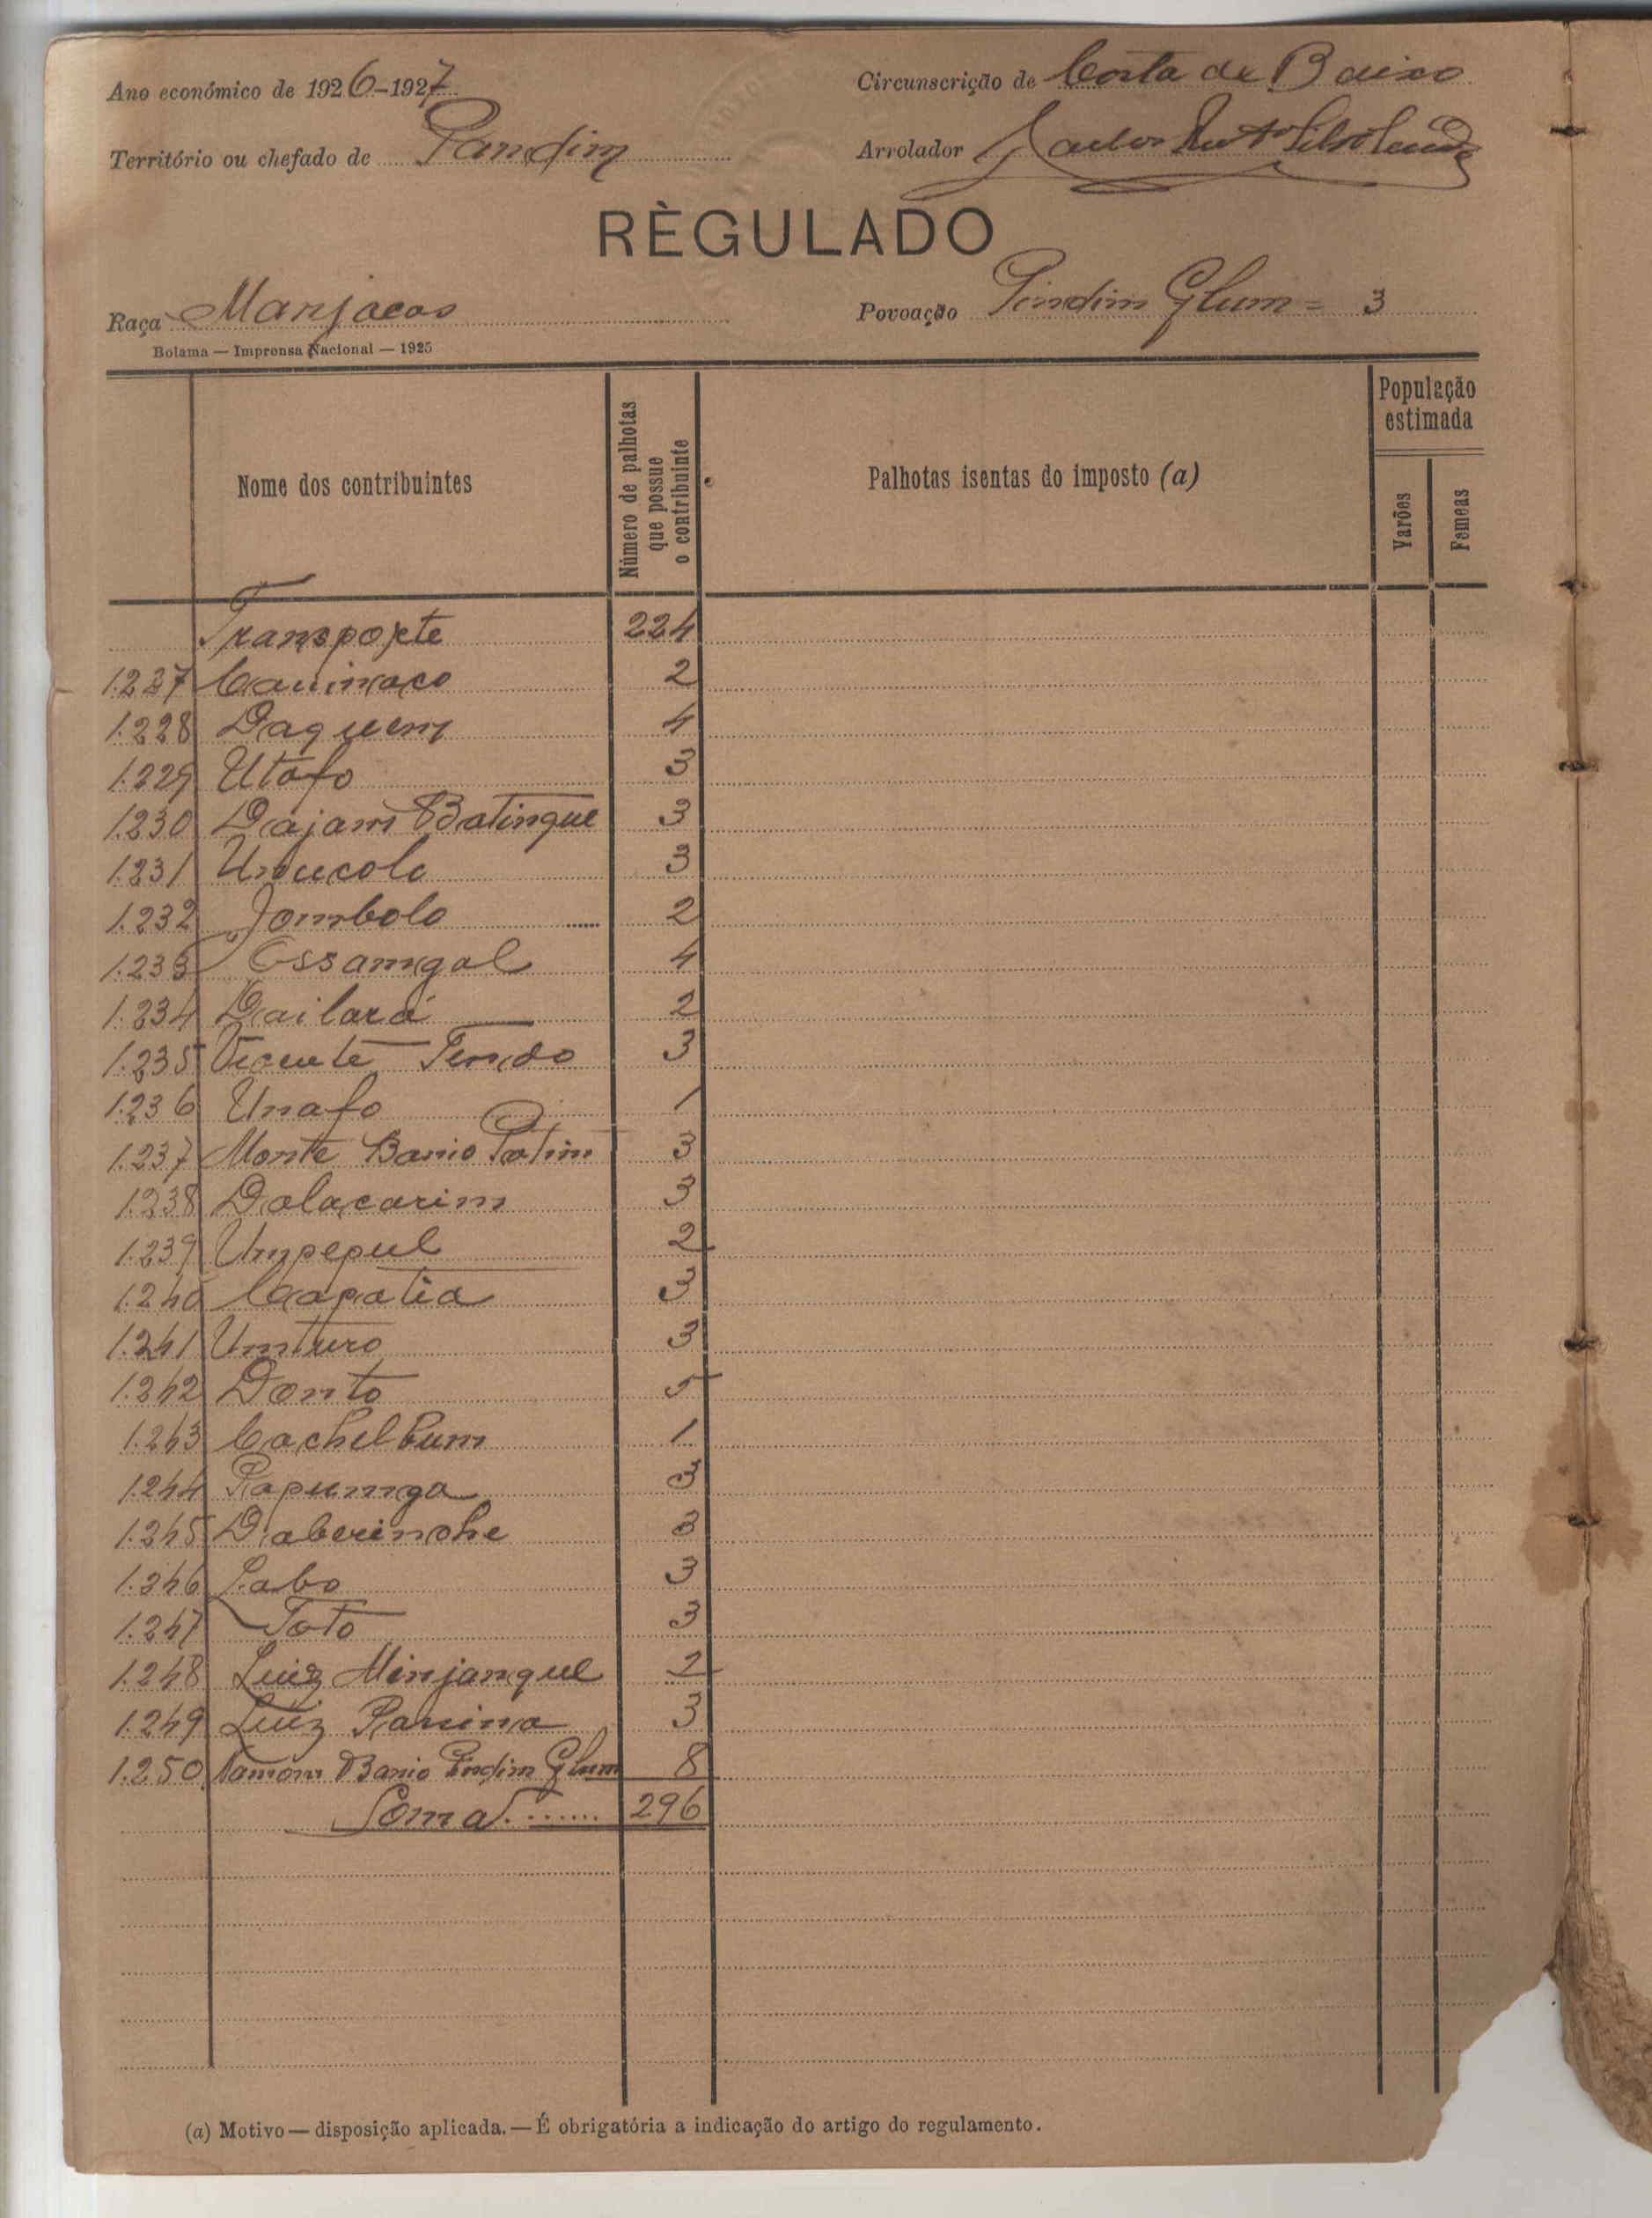 Ano económico de 1926-1927
Circunscrição de Costa de Baixo
Território ou chefado de Pandim
Arrolador
RÈGULADO
Raça Manjacos
Povoação Pindim Glum = 3
Bolama — Imprensa Nacional — 1925
Nome dos contribuintes
Número de palhotas que possue o contribuinte
Palhotas isentas do imposto (a)
População estimada
Varões
Femeas
Transporte 224
1.227 Cauinaco 2
1.228 Daquem 4
1.229 Utafo 3
1.230 Dajam Batinque 3
1.231 3
1.232 Jombolo 2
1.233 Ossamgal 4
1.234 Dailará 2
1.235 Vicente Tendo 3
1.236 Unafo 1
1.237 Monte Banio Patim 3
1.238 Dalacarim 3
1.239 Umpepul 2
1.240 Capatia 3
1.241 Umturo 3
1.242 Donto 5
1.243 Cachelbum 1
1.244 Papumga 3
1.245 Daberinche 3
1.246 Labo 3
1.247 Toto 3
1.248 Luiz Minjanque 2
1.249 Luiz 3
1.250 Namom Banio Pindim Glum 8
Soma....... 296
(a) Motivo — disposição aplicada. — É obrigatória a indicação do artigo do regulamento.